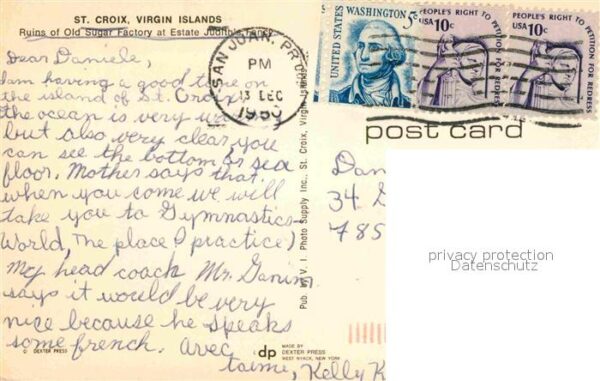 ST. CROIX, VIRGIN ISLANDS
Ruins of Old Sugar Factory at Estate Judith's Fancy
Dear Daniele,
I am having a good time on
the island of St. Croix
the ocean is very
but also very clear, you
can see the bottom or sea
floor. Mother says that
when you come we will
take you to Gymnastics
World, The place I practice)
My head coach Mr.
says it would be very
nice because he speaks
some french. avec
taime, Kelly K
© DEXTER PRESS
Pub. by V. I. Photo Supply Inc., St. Croix, Virgin Islands
dp
MADE BY
DEXTER PRESS
WEST NYACK, NEW YORK
SAN JUAN, PR
PM
13 DEC
UNITED STATES
WASHINGTON 5c
PEOPLE'S RIGHT TO PETITION FOR REDRESS
USA 10c
PEOPLE'S RIGHT TO PETITION FOR REDRESS
USA 10c
post card
Dan
34
785
privacy protection
Datenschutz